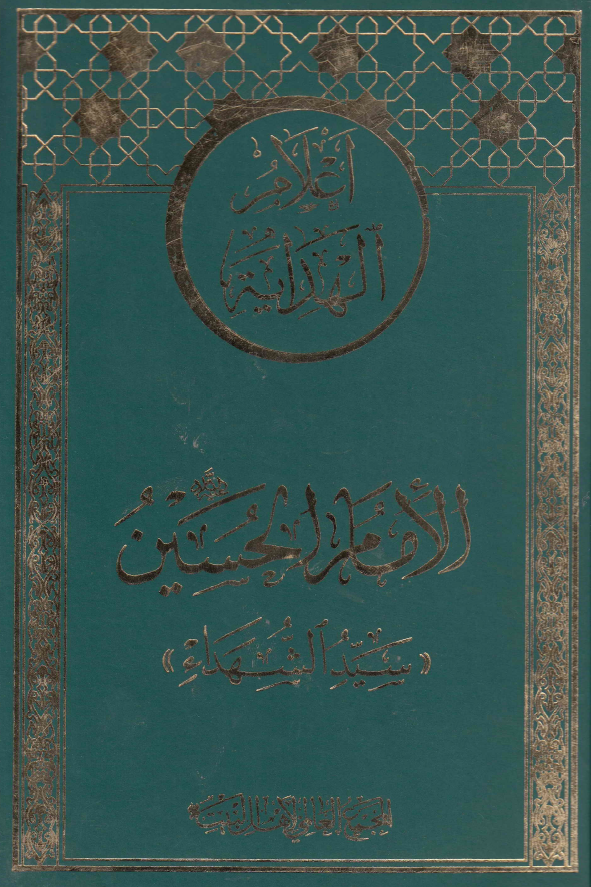 أعلام
الهداية
الإمام الحسين
«سيد الشهداء»
المجمع العالمي لأهل البيت